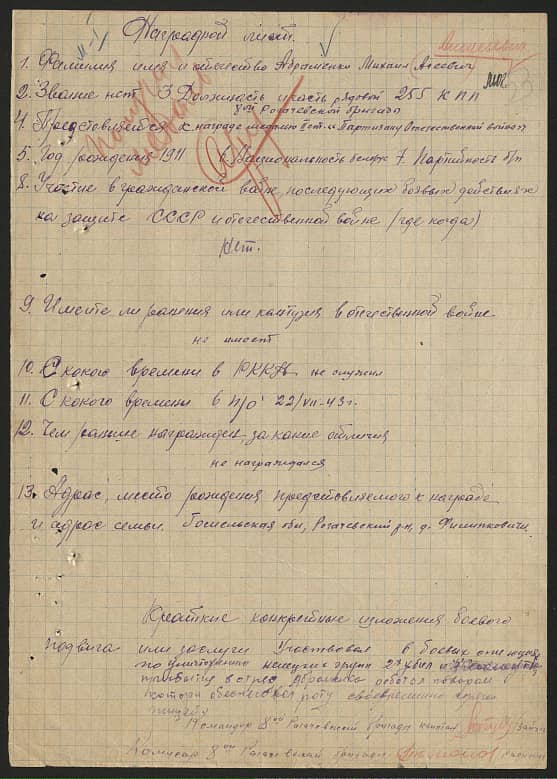 Наградной лист.
1. Фамилия имя и отчество Абраменко Михаил
2. Звание нет 3. Должность и часть рядовой 255 К П П
8ой Рогачевской бригады
4. Представляется к награде медалью Пст. Партизану Отечественной войны
5. Год рождения 1911 6. Национальность белорус 7. Партийность б/п
8. Участие в гражданской войне, последующих боевых действиях
на защите СССР и отечественной войне (где когда)
Нет.
9. Имеите ли ранения или кантузия в отечественной войне
не имеет
10. С какого времени в РККА не служил
11. С какого времени в п/о 22/VII-43г.
12. Чем раньше награжден, за какие отличия
не награждался
13. Адрес, место рождения представляемого к награде
и адрес семьи. Гомельская обл, Рогачевский р-н, д. Филипковичи
Краткие конкретные изложения боевого
подвига или заслуги Участвовал в боевых
немецких групп 2х убил и
Абраменко работал поваром
роту своевременно
Командир 8ой Рогачевской бригады капитан
Комисар 8ой Рогачевской бригады